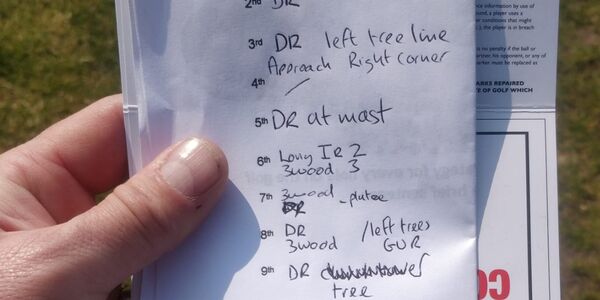 2nd DR
3rd DR left tree line
Approach Right corner
4th
5th DR at mast
6th Long IR 2
3wood 3
7th 3wood
DR
8th DR /left trees
3wood GUR
9th DR
tree
nce information by use of
und, a player uses a
er conditions that might
), the player is in breach
is no penalty if the ball or
artner, his opponent, or any of
arker must be replaced as
ARKS REPAIRED
TE OF GOLF WHICH
CO